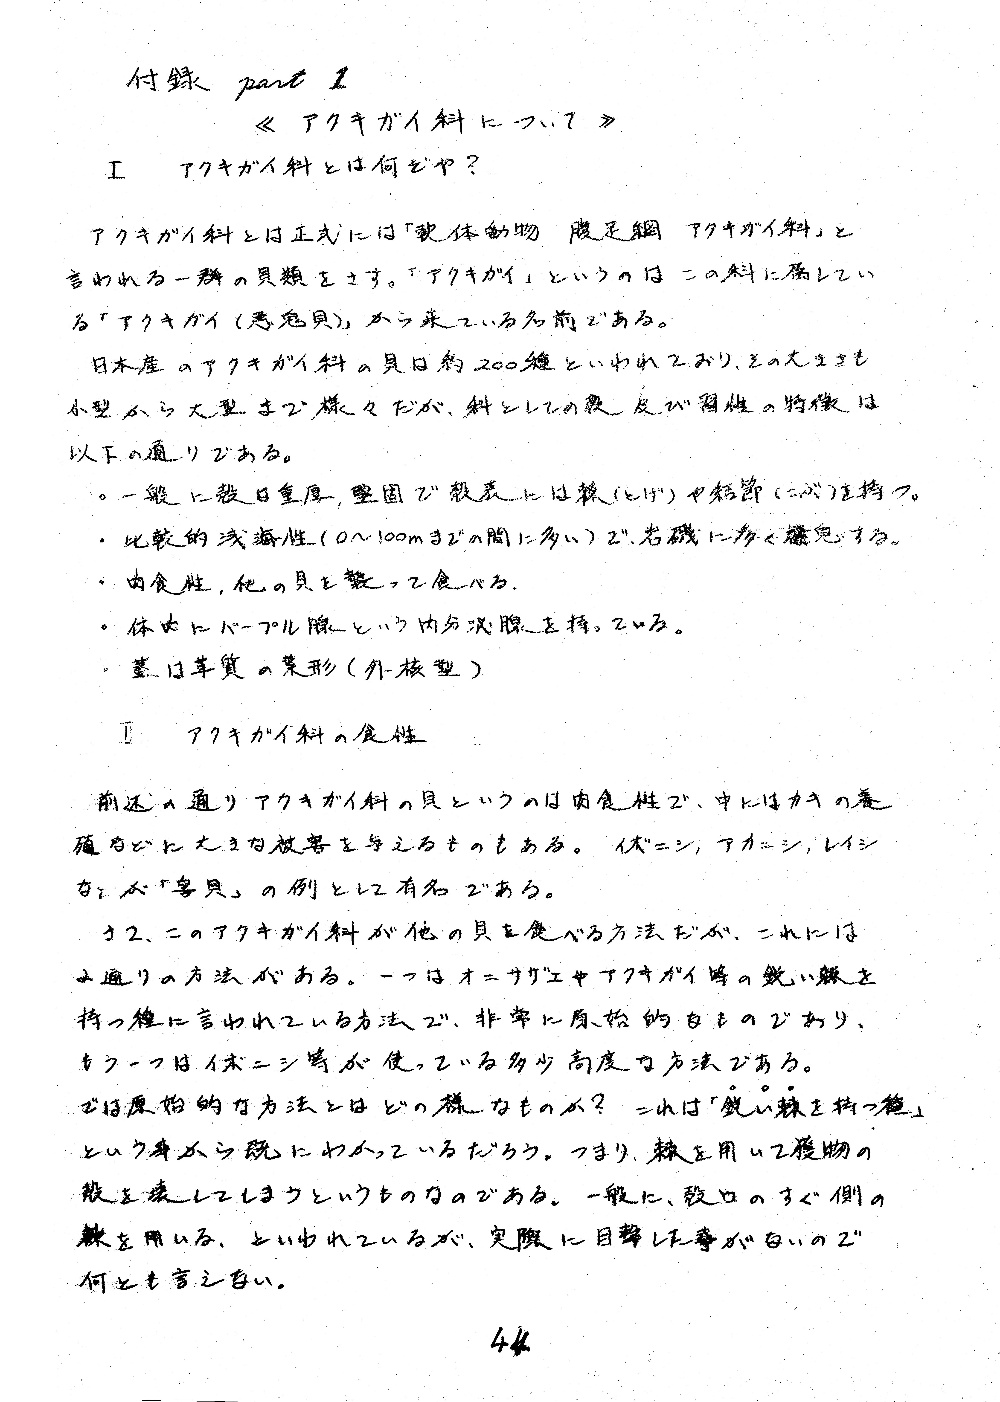 付録 part 1
≪ アクキガイ科について ≫
I アクキガイ科とは何ぞや?
アクキガイ科とは正式には「軟体動物 腹足綱 アクキガイ科」と
言われる一群の貝類をさす。「アクキガイ」というのはこの科に属してい
る「アクキガイ(悪鬼貝)」から来ている名前である。
日本産のアクキガイ科の貝は約200種といわれており、その大きさも
小型から大型まで様々だが、科としての殻及び習性の特徴は
以下の通りである。
・一般に殻は重厚,堅固で殻表には棘(とげ)や結節(こぶ)を持つ。
・比較的浅海性(0~100mまでの間に多い)で、岩礁に多く棲息する。
・肉食性,他の貝を襲って食べる.
・体内にパープル腺という内分泌腺を持っている。
・蓋は革質の葉形(外核型)
II アクキガイ科の食性
前述の通りアクキガイ科の貝というのは肉食性で、中にはカキの養
殖などに大きな被害を与えるものもある。イボニシ,アカニシ,レイシ
などが「害貝」の例として有名である。
さて、このアクキガイ科が他の貝を食べる方法だが、これには
2通りの方法がある。一つはオニサザエやアクキガイ等の鋭い棘を
持つ種に言われている方法で、非常に原始的なものであり、
もう一つはイボニシ等が使っている多少高度な方法である。
では原始的な方法とはどの様なものか? これは「鋭い棘を持つ種」
という事から既にわかっているだろう。つまり、棘を用いて獲物の
殻を壊してしまうというものなのである。一般に、殻口のすぐ側の
棘を用いる、といわれているが、実際に目撃した事がないので
何とも言えない。
44